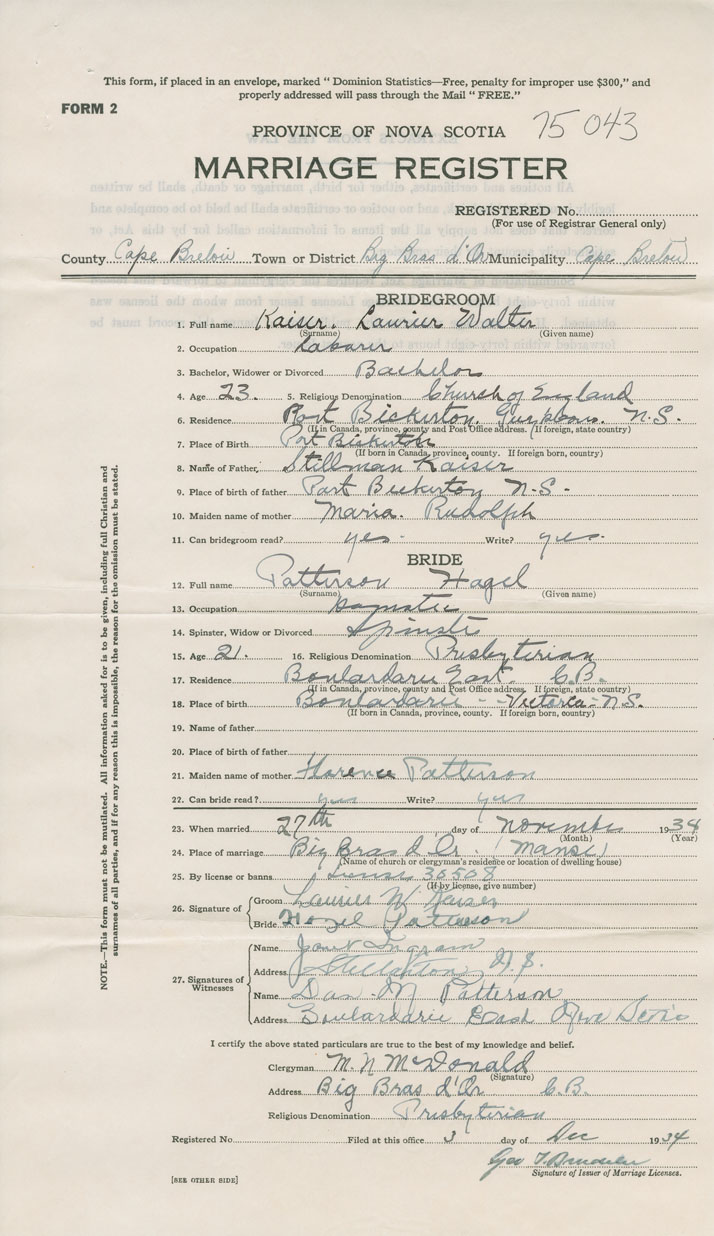 This form, if placed in an envelope, marked " Dominion Statistics—Free, penalty for improper use $300," and
properly addressed will pass through the Mail " FREE."
FORM 2
PROVINCE OF NOVA SCOTIA 75043
MARRIAGE REGISTER
REGISTERED No.
(For use of Registrar General only)
County Cape Breton Town or District Big Bras d'Or Municipality Cape Breton
BRIDEGROOM
1. Full name Kaiser. Laurier Walter
(Surname) (Given name)
2. Occupation Laborer
3. Bachelor, Widower or Divorced Bachelor
4. Age 23. 5. Religious Denomination Church of England
6. Residence Port Bickerton, N.S.
(If in Canada, province, county and Post Office address. If foreign, state country)
7. Place of Birth Port Bickerton
(If born in Canada, province, county. If foreign born, country)
8. Name of Father Stillman Kaiser
9. Place of birth of father Port Bickerton N.S.
10. Maiden name of mother Maria. Rudolph
11. Can bridegroom read? yes. Write? yes.
BRIDE
12. Full name Patterson Hazel
(Surname) (Given name)
13. Occupation Domestic
14. Spinster, Widow or Divorced Spinster
15. Age 21. 16. Religious Denomination Presbyterian
17. Residence Boulardarie East. C.B.
(If in Canada, province, county and Post Office address. If foreign, state country)
18. Place of birth Boulardarie - Victoria - N.S.
(If born in Canada, province, county. If foreign born, country)
19. Name of father
20. Place of birth of father
21. Maiden name of mother Florence Patterson
22. Can bride read? yes Write? yes
23. When married 27th day of November 1934
(Month) (Year)
24. Place of marriage Big Bras d'Or. (Manse)
(Name of church or clergyman's residence or location of dwelling house)
25. By license or banns License 36508
(If by license, give number)
26. Signature of
Groom Laurier W Kaiser
Bride Hazel Patterson
27. Signatures of Witnesses
Name Janet Ingram
Address N.S.
Name Dan. M Patterson
Address Boulardarie East Nova Scotia
I certify the above stated particulars are true to the best of my knowledge and belief.
Clergyman M. N. McDonald
(Signature)
Address Big Bras d'Or C.B.
Religious Denomination Presbyterian
Registered No. Filed at this office 3 day of Dec 1934
Geo
Signature of Issuer of Marriage Licenses.
[SEE OTHER SIDE]
NOTE.—This form must not be mutilated. All information asked for is to be given, including full Christian and
surnames of all parties, and if for any reason this is impossible, the reason for the omission must be stated.